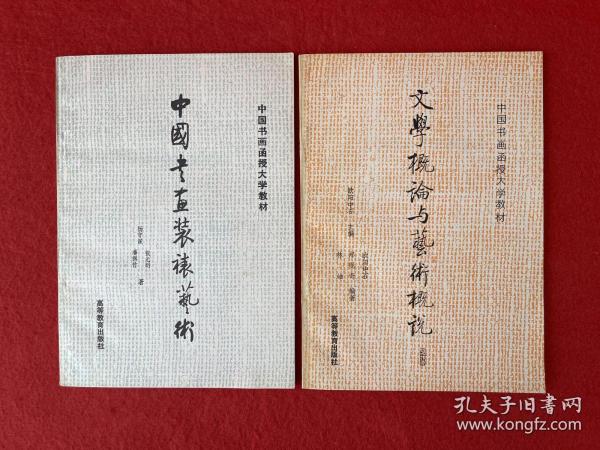 中国书画函授大学教材
中國书画装裱藝術
著
高等教育出版社
中国书画函授大学教材
文學概論与藝術概説
欧阳中石 主编
编著
高等教育出版社
孔夫子旧书网
www.kongfz.com